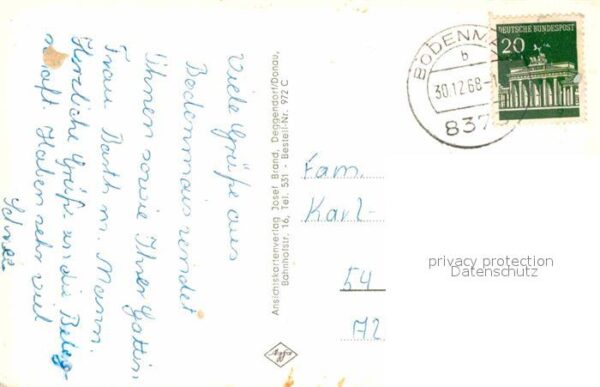 Viele Grüße aus
Bodenmais sendet
Ihnen sowie Ihrer Gattin
Frau Barth m. Mann.
Herzliche Grüße an die Beleg-
schaft. Haben sehr viel
Schnee
Ansichtskartenverlag Josef Brand, Deggendorf/Donau,
Bahnhofstr. 16, Tel. 531 - Bestell-Nr. 972 C
Agfa
BODENM
b
30.12.68-
837
20
DEUTSCHE BUNDESPOST
Fam.
Karl-
54
A2
privacy protection
Datenschutz